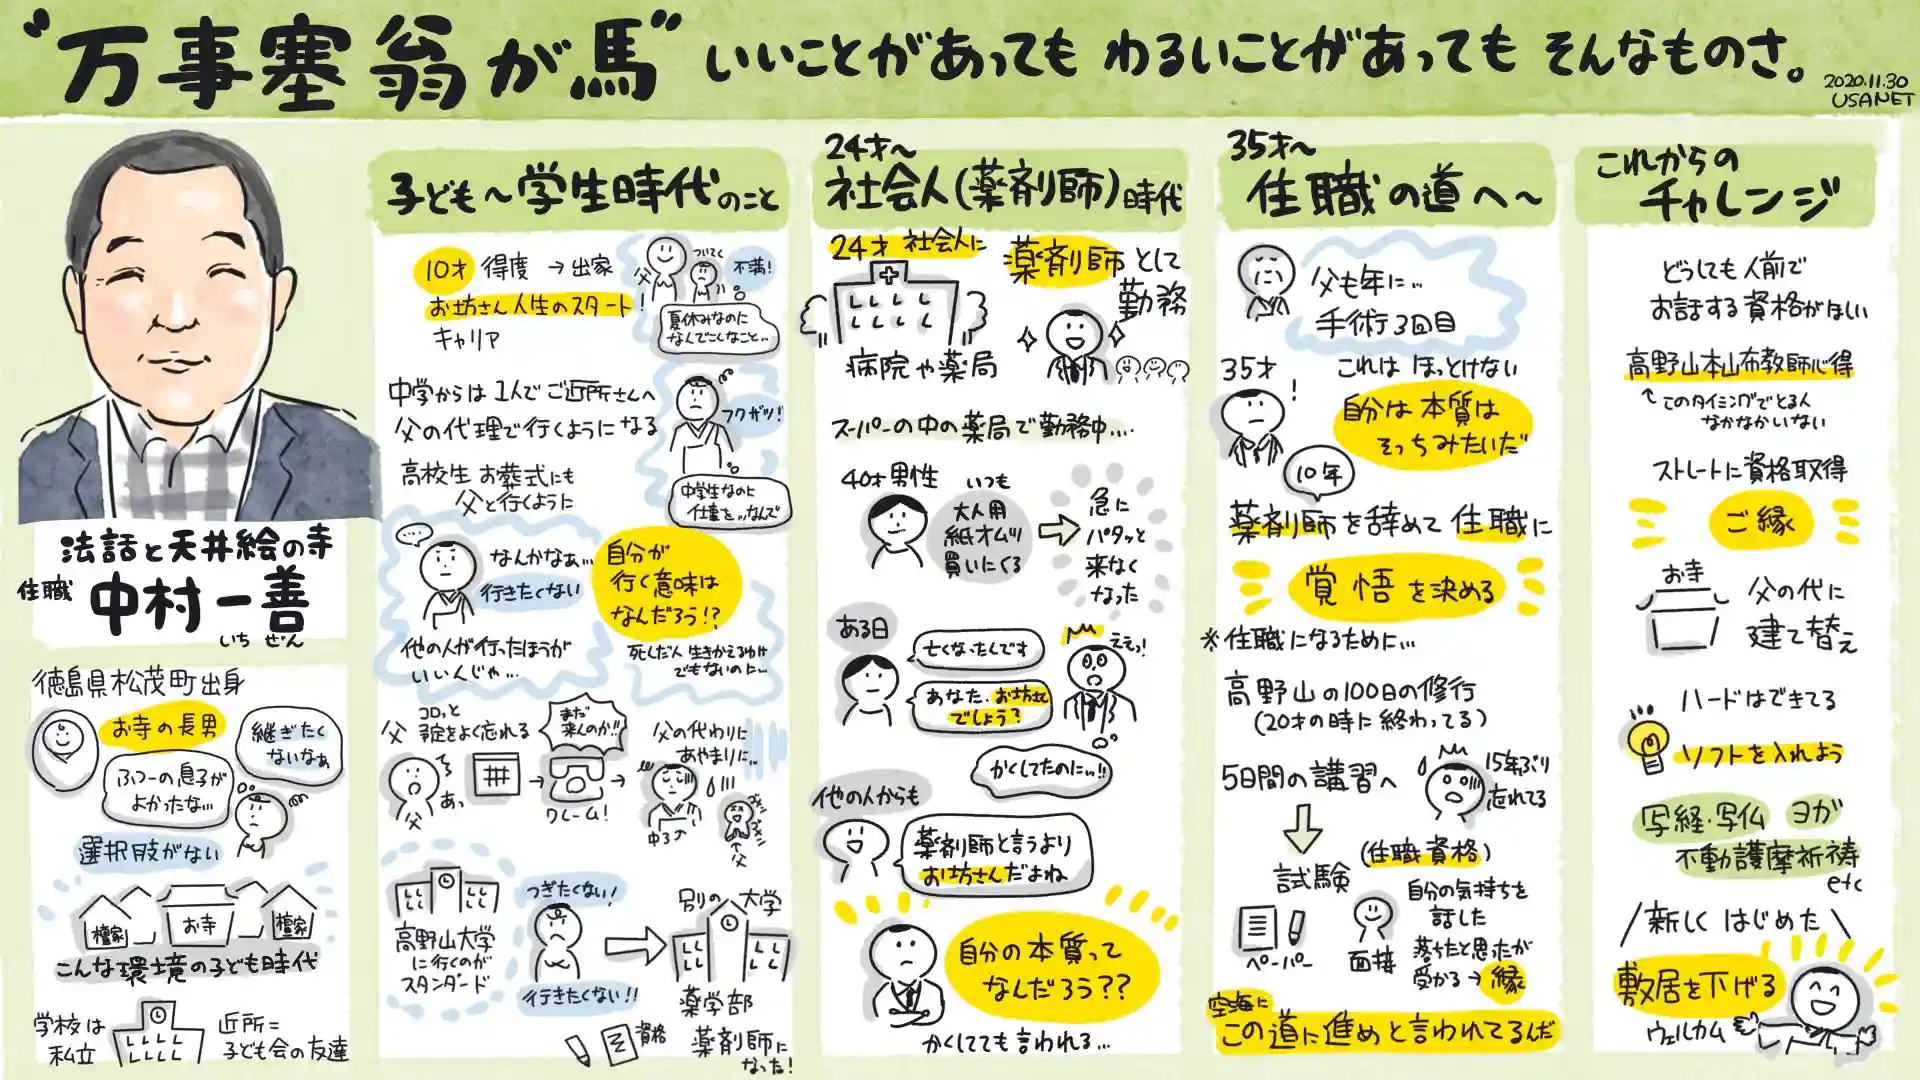 "万事塞翁が馬" いいことがあっても わるいことがあっても そんなものさ。
2020.11.30
USANET
法話と天井絵の寺
住職 中村一善
いち ぜん
徳島県松茂町出身
お寺の長男
継ぎたく
ないなぁ
ふつーの息子が
よかったな…
選択肢がない
檀家
お寺
檀家
こんな環境の子ども時代
学校は
私立
近所=
子ども会の友達
子ども〜学生時代のこと
10才 得度 → 出家
お坊さん人生のスタート!
キャリア
父
ついてく
不満!
夏休みなのに
なんでこんなこと…
中学からは1人でご近所さんへ
父の代理で行くようになる
フクザツ!
中学生なのに
仕事を…なんで
高校生 お葬式にも
父と行くように
なんかなぁ…
行きたくない
自分が
行く意味は
なんだろう!?
他の人が行ったほうが
いいんじゃ…
死んだ人生きかえるわけ
でもないのに…
父 コロッと
予定をよく忘れる
あっ
父
まだ
来んのか!!
クレーム!
父の代わりに
あやまりに…
中3
ゴメン
ゴメン
父
高野山大学
に行くのが
スタンダード
つぎたくない!
行きたくない!!
別の大学
薬学部
資格
薬剤師に
なった!
24才〜
社会人(薬剤師)時代
24才 社会人に
薬剤師として
勤務
病院や薬局
スーパーの中の薬局で勤務中…
40才男性
いつも
大人用
紙オムツ
買いにくる
急に
パタッと
来なく
なった
ある日
亡くなったんです
あなた、お坊さん
でしょう?
ええっ!
かくしてたのに…!!
他の人からも
薬剤師と言うより
お坊さんだよね
自分の本質って
なんだろう??
かくしてても言われる…
35才〜
住職の道へ〜
父も年に…
手術3回目
35才
これは ほっとけない
自分は本質は
そっちみたいだ
10年
薬剤師を辞めて住職に
覚悟を決める
※住職になるために…
高野山の100日の修行
(20才の時に終わってる)
5日間の講習へ
15年ぶり
忘れてる
試験
(住職資格)
ペーパー
面接
自分の気持ちを
話した
落ちたと思ったが
受かる→縁
空海に
この道に進めと言われてるんだ
これからの
チャレンジ
どうしても人前で
お話する資格がほしい
高野山本山布教師心得
↑このタイミングでとる人
なかなかいない
ストレートに資格取得
ご縁
お寺
父の代に
建て替え
ハードはできてる
ソフトを入れよう
写経・写仏 ヨガ
不動護摩祈祷
etc
新しくはじめた
敷居を下げる
ウェルカム